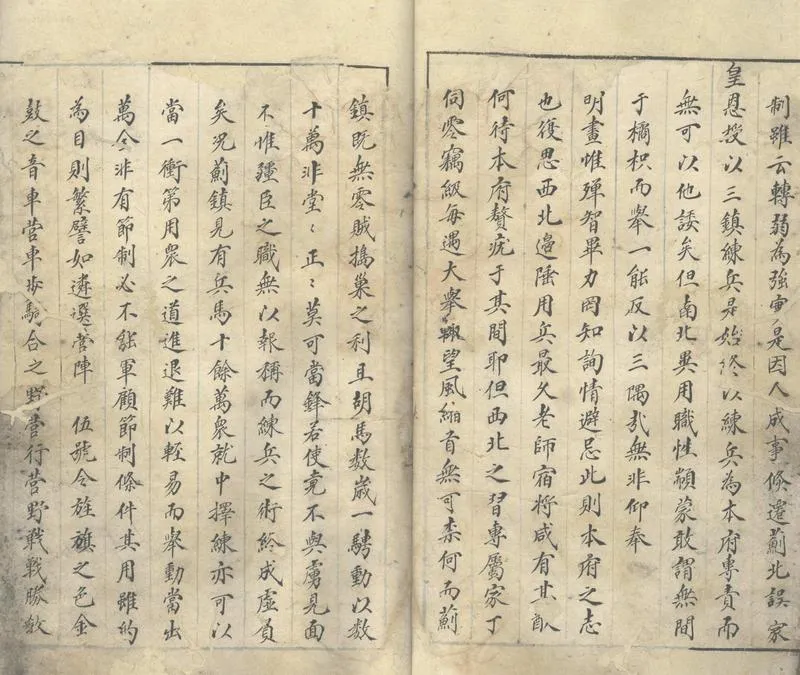 制雖云轉弱為強寔是因人成事倏遷薊北誤家
皇恩投以三鎮練兵是始終以練兵為本府專責而
無可以他諉矣但南北異用職性顓蒙敢謂無間
于橘枳而舉一能反以三隅哉無非仰奉
明畫惟殫智畢力罔知詢情避忌此則本府之志
也復思西北邉陲用兵最久老師宿将咸有其
何待本府贅疣于其間耶但西北之習專屬家丁
伺零竊級每遇大舉輙望風縮首無可柰何而薊
鎮既無零賊搗巢之利且胡馬数歳一騁動以数
十萬非堂〻正〻莫可當鋒若使竟不與虜見面
不惟疆臣之職無以報稱而練兵之術終成虛負
矣况薊鎮見有兵馬十餘萬衆就中擇練亦可以
當一衝第用衆之道進退難以輕易而舉動當出
萬全非有節制必不能軍顧節制條件其用雖的
為目則繁譬如遴選營陣 伍號令旌旗之色金
鼓之音車營車步騎合之野營行營野戰戰勝教